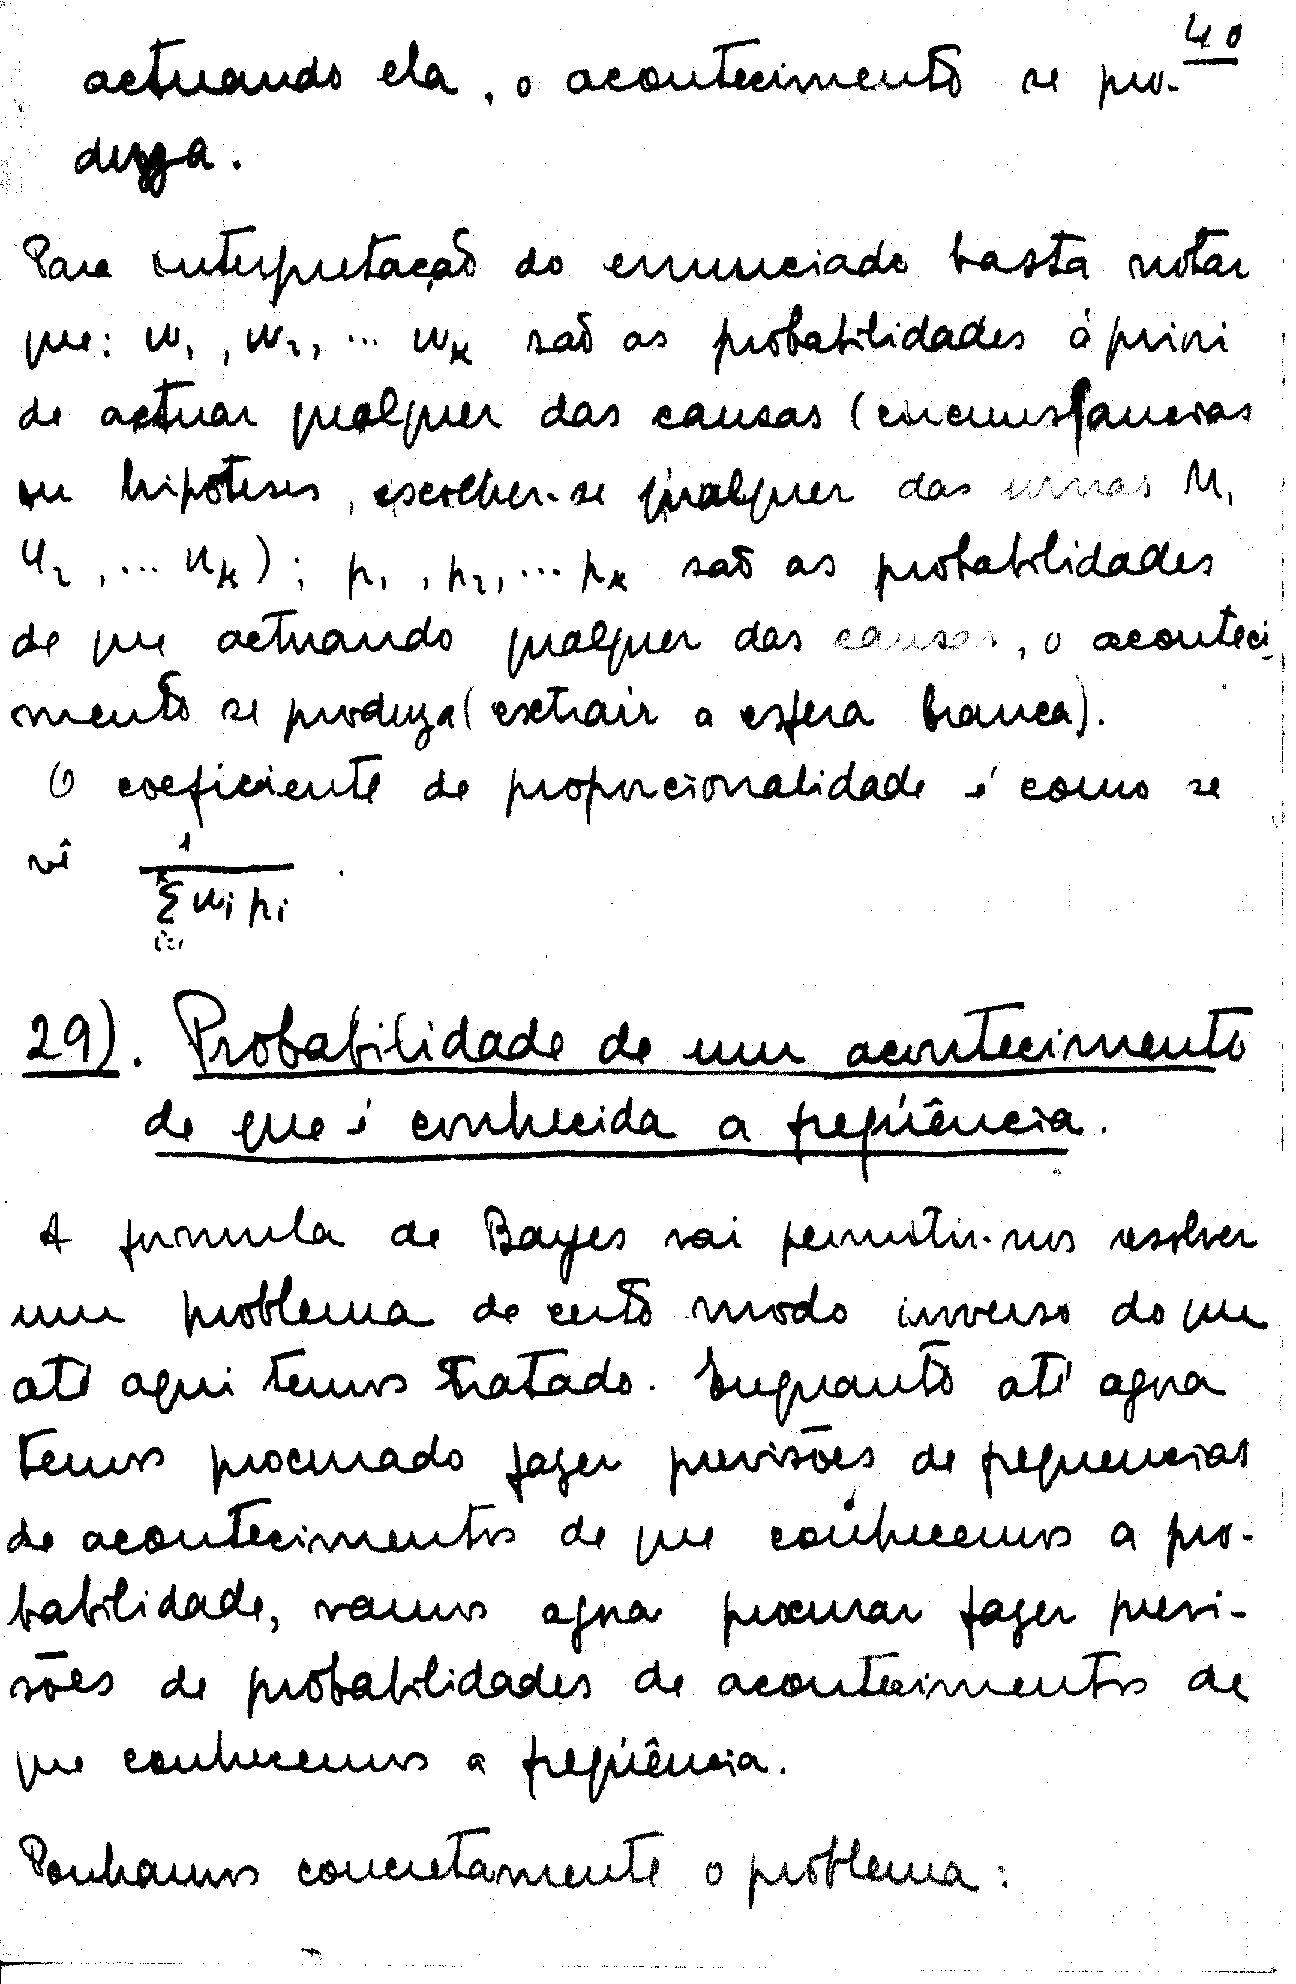 40
actuando ela, o acontecimento se pro-
duzza.
Para interpretação do enunciado basta notar
que: w₁, w₂, ... wₖ são as probabilidades á priori
de actuar qualquer das causas (circumstancias
ou hipóteses, escolher-se qualquer das urnas U₁
U₂, ... Uₖ); p₁, p₂, ... pₖ são as probabilidades
de que actuando qualquer das causas, o aconteci
mento se produza (extrair a esfera branca).
O coeficiente de proporcionalidade é como se
vê 1 / k∑i=1 wᵢ pᵢ.
29). Probabilidade de um acontecimento
de que é conhecida a freqüência.
A formula de Bayes vai permitir-nos resolver
um problema de certo modo inverso do que
até aqui temos tratado. Enquanto até agora
temos procurado fazer previsões de frequencias
de acontecimentos de que conhecemos a pro-
babilidade, vamos agora procurar fazer previ-
sões de probabilidades de acontecimentos de
que conhecemos a freqüência.
Ponhamos concretamente o problema: